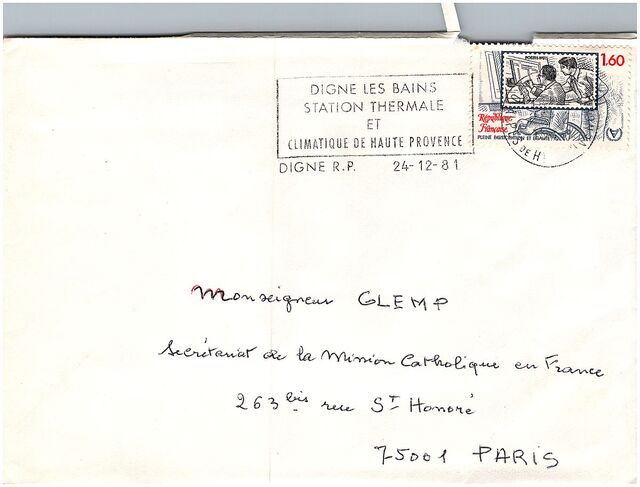 1.60
POSTES 1981
République
Française
PLEINE PARTICIPATION ET ÉGALITÉ
DIGNE LES BAINS
STATION THERMALE
ET
CLIMATIQUE DE HAUTE PROVENCE
DIGNE R.P. 24-12-81
DE H
Monseigneur GLEMP
Secrétariat de la Mission Catholique en France
263 bis rue St Honoré
75001 PARIS